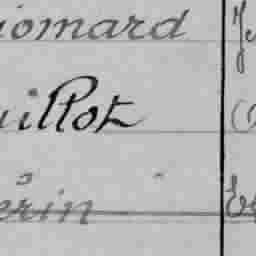 iomard
uillot
érin